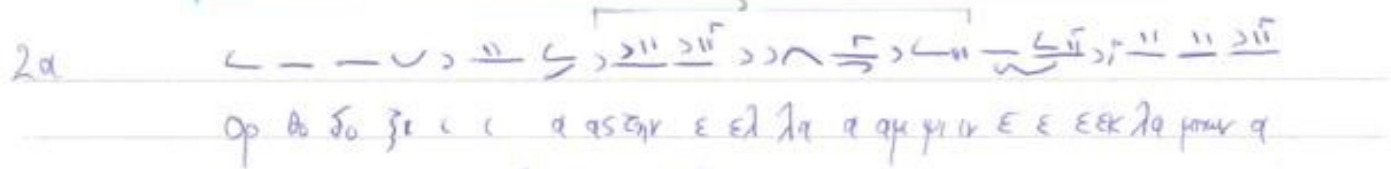 2α
Ορ θο δο ξι ι ι α ας την ε ελ λα α αμ ψιν ε ε εεκ λα μπων α